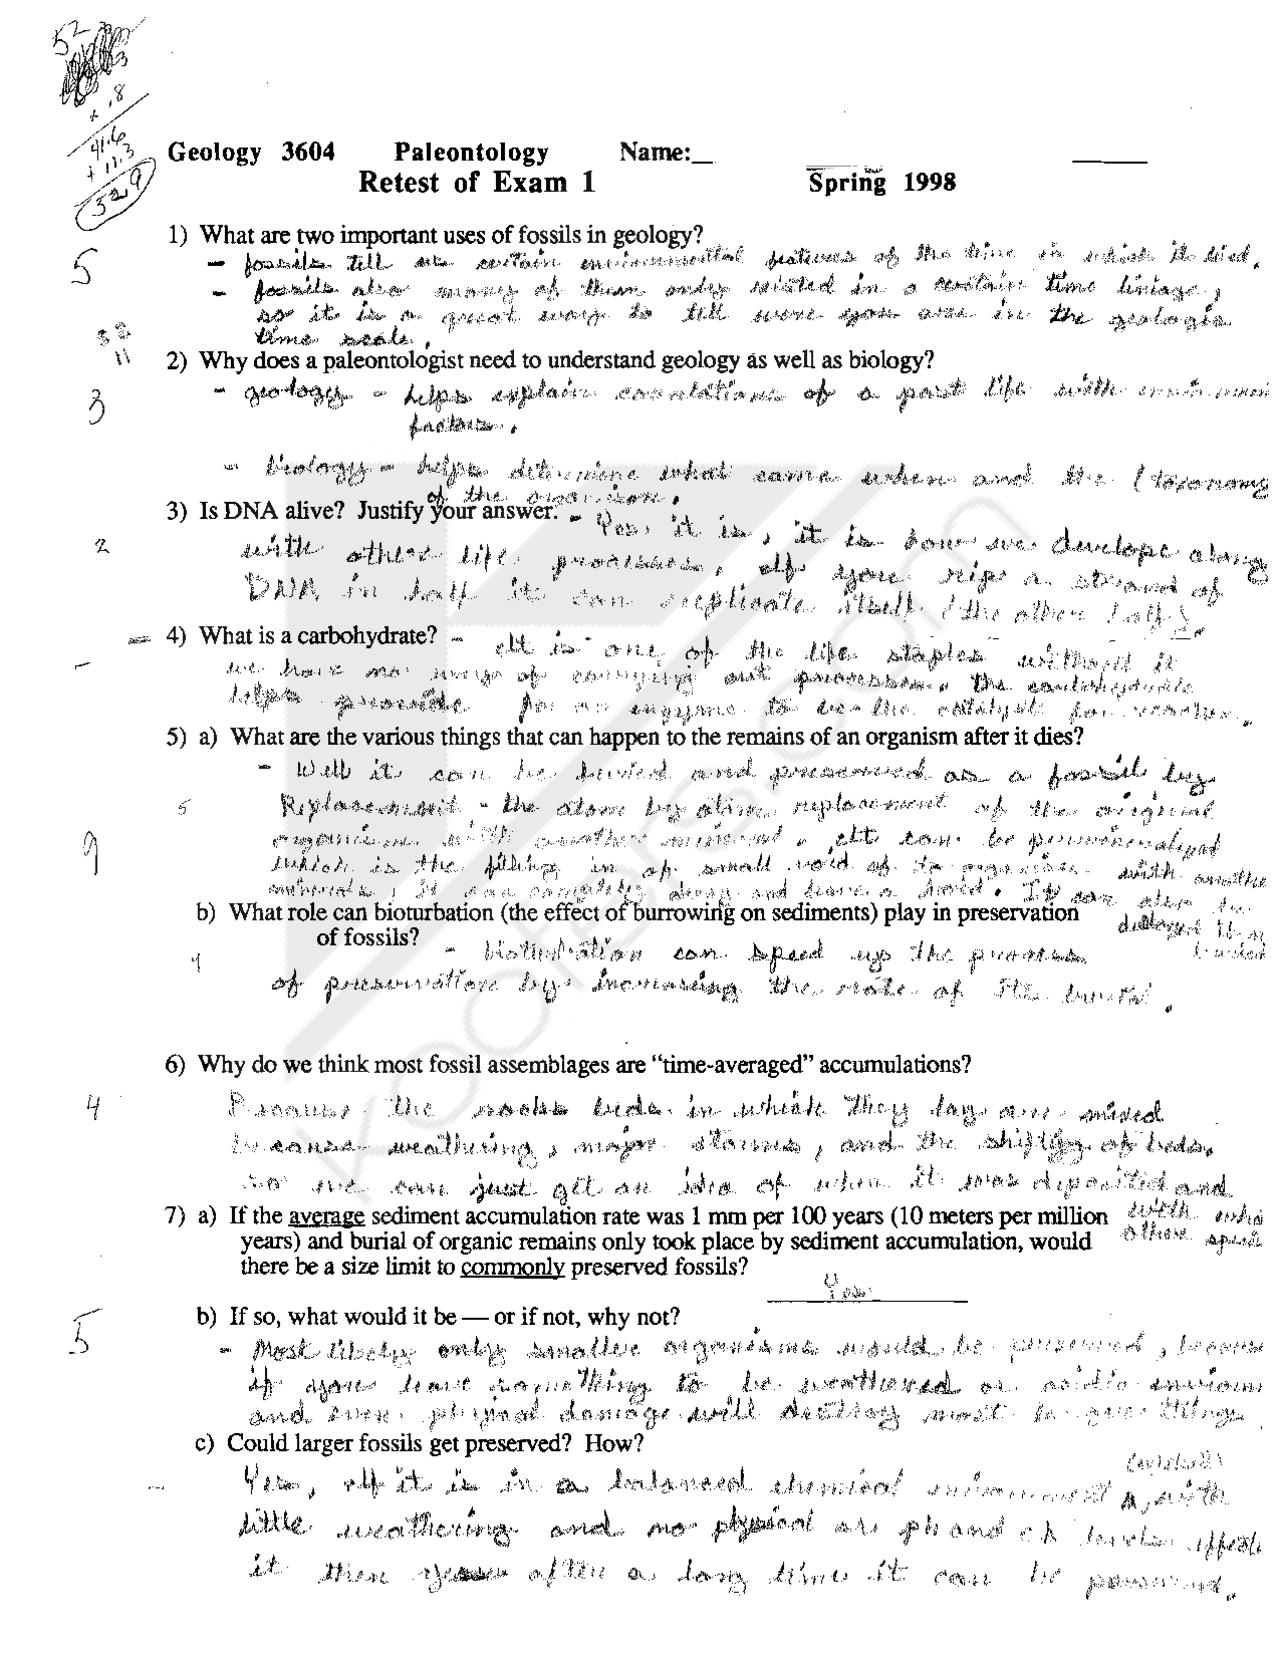 52
+ .8
41.6
+ 11.3
52.9
Geology 3604 Paleontology Name:__
Retest of Exam 1 Spring 1998
1) What are two important uses of fossils in geology?
5
- fossils tell us certain environmental features of the time in which it died.
- fossils also many of them only existed in a certain time liniage,
so it is a great way to tell were you are in the geologic
time scale.
32
11
2) Why does a paleontologist need to understand geology as well as biology?
3
- geology - helps explain correlations of a past life with
factors.
- biology - helps determine what came when and the (taxonomy
of the organism.
3) Is DNA alive? Justify your answer.
- Yes, it is, it is how we develope along
2
with other life processes, If you rip a strand of
DNA in half it can replicate itself (the other half).
4) What is a carbohydrate?
- It is one of the life staples without it
we have no ways of carrying out processes. The carbohydrate
helps provide for an enzyme to be the catalyst for
5) a) What are the various things that can happen to the remains of an organism after it dies?
- Well it can be buried and preserved as a fossil by
5
Replacement - the atom by atom replacement of the original
9
organism with another mineral. It can be permineralized
which is the filling in of small void of organism with another
minerals, it can completely and leave a It can also be
b) What role can bioturbation (the effect of burrowing on sediments) play in preservation
of fossils?
destroyed then
buried
4
- bioturbation can speed up the process
of preservation by increasing the rate of the burial.
6) Why do we think most fossil assemblages are “time-averaged” accumulations?
4
Because the rocks beds in which they lay are mixed
because weathering, major storms, and the shifting of beds.
so we can just get an idea of when it was deposited and
with
other
7) a) If the average sediment accumulation rate was 1 mm per 100 years (10 meters per million
years) and burial of organic remains only took place by sediment accumulation, would
there be a size limit to commonly preserved fossils?
Yes
b) If so, what would it be — or if not, why not?
5
- Most likely only smaller organisms would be preserved, because
if you leave something to be weathered or acidic
and even physical damage will destroy most large things
c) Could larger fossils get preserved? How?
Yes, If it is in a balanced chemical environment, with
little weathering and no physical or ph and levels effect
it then yes after a long time it can be preserved.
koofers.com